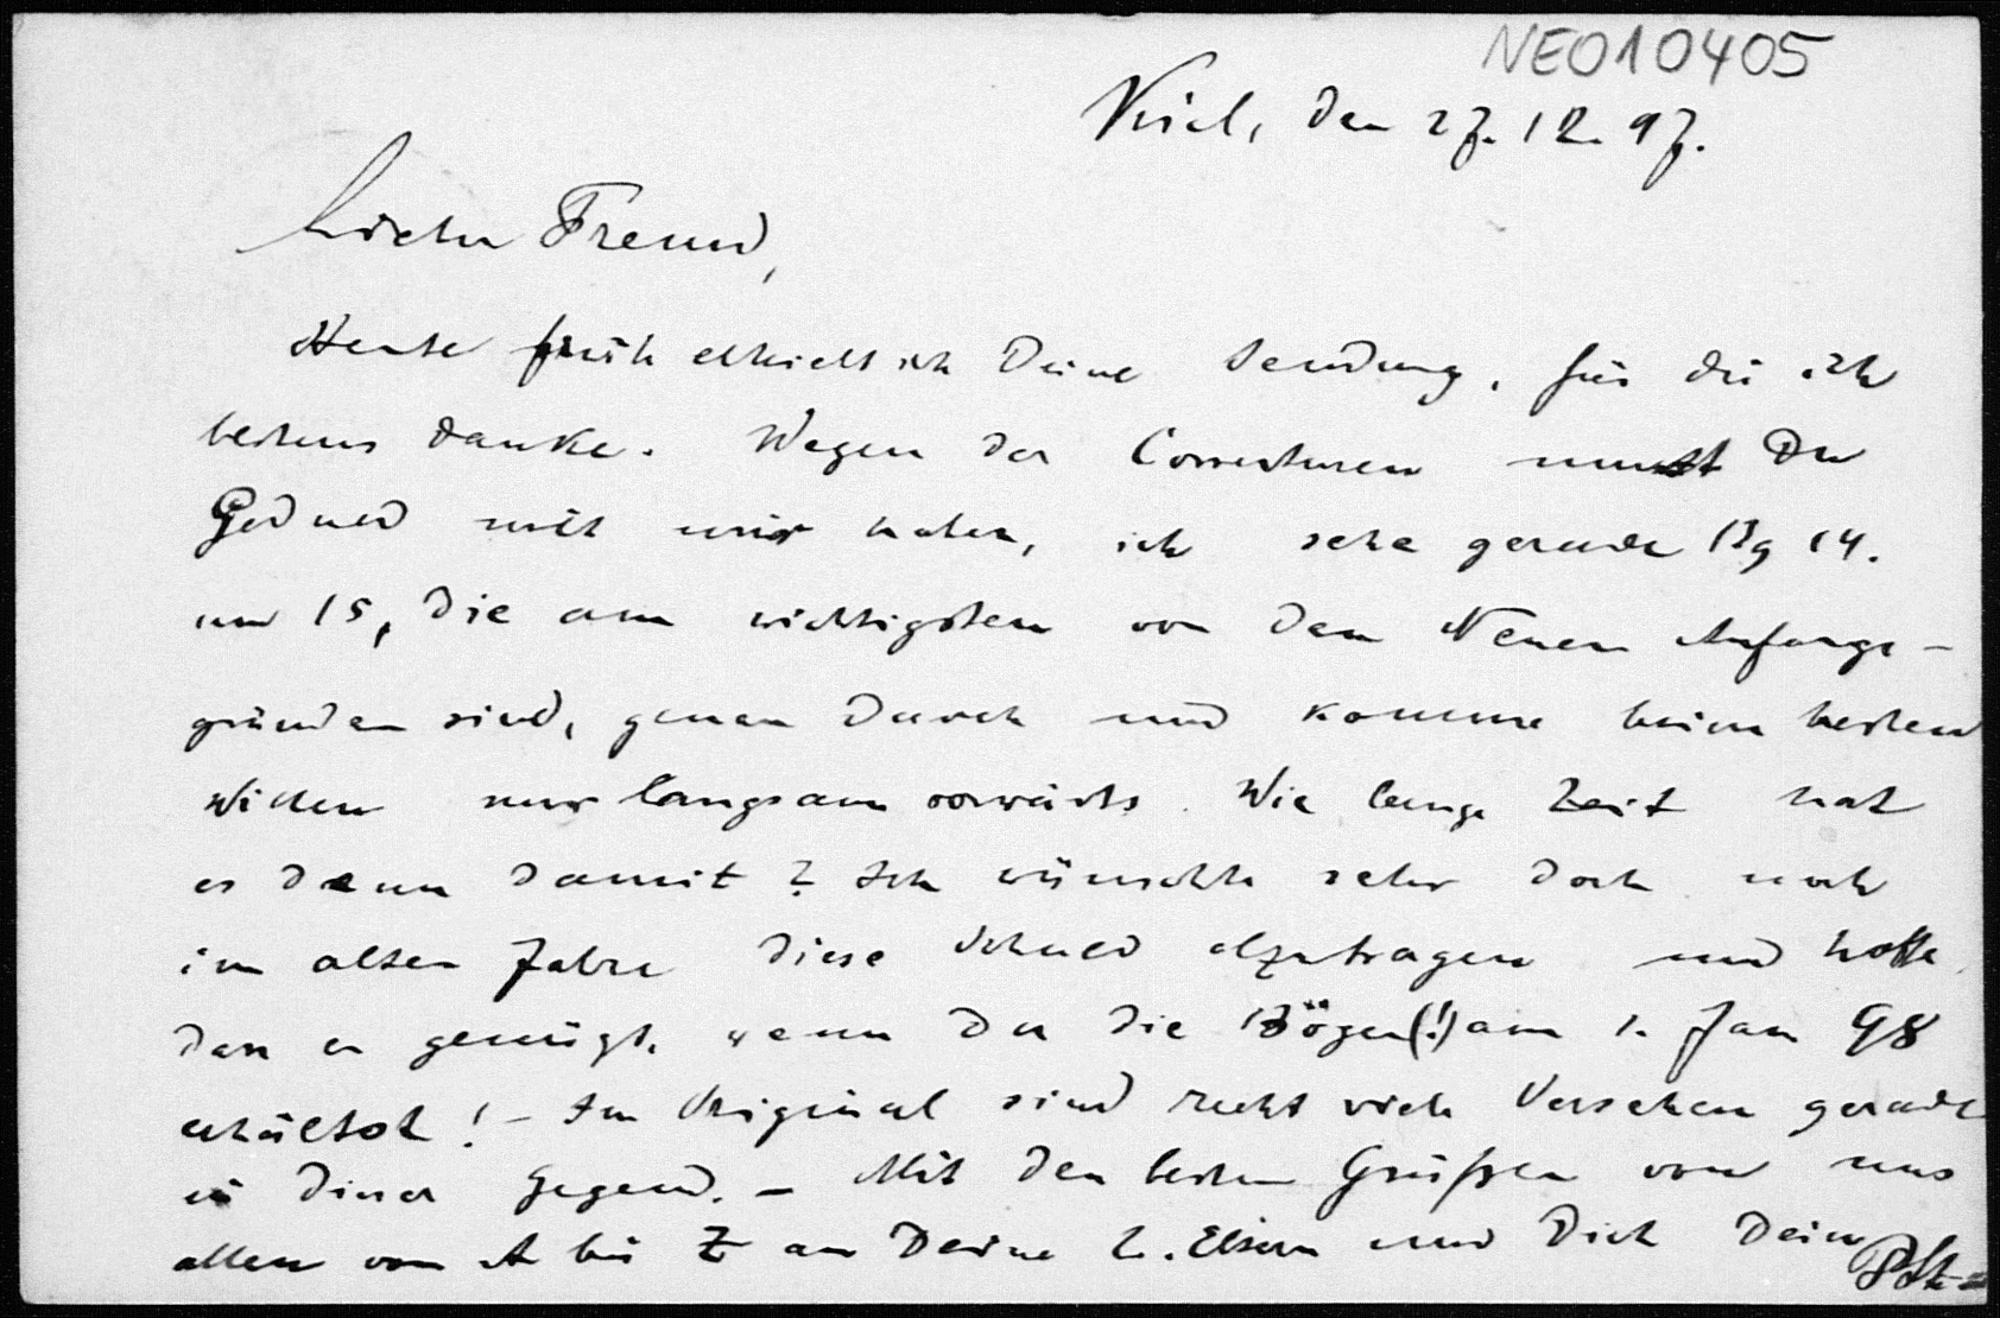 NEO10405
Kiel, den 27. 12. 97.
Lieber Freund,
Heute früh erhielt ich Deine Sendung, für die ich
bestens danke. Wegen der Correcturen musst Du
Geduld mit mir haben, ich sehe gerade Bg 14.
und 15, die am wichtigsten von den Neuen Anfangs-
gründen sind, genau durch und komme beim besten
Willen nur langsam vorwärts. Wie lange Zeit hat
es denn damit? Ich wünschte sehr doch noch
im alten Jahre diese Schuld abzutragen und hoffe
dass es genügt, wenn Du die Bögen(!) am 1. Jan 98
erhältst! – Im Original sind recht viele Versehen gerade
in dieser Gegend. – Mit den besten Grüßen von uns
allen von A bis Z an Deine l. Eltern und Dich Dein